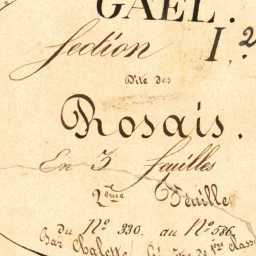 GAËL.
Section I.2
Dite des
Rosais.
En 3 feuilles
2ème Feuille
du No 330. au No 586.
Par Chalette Géomètre de 1ère Classe